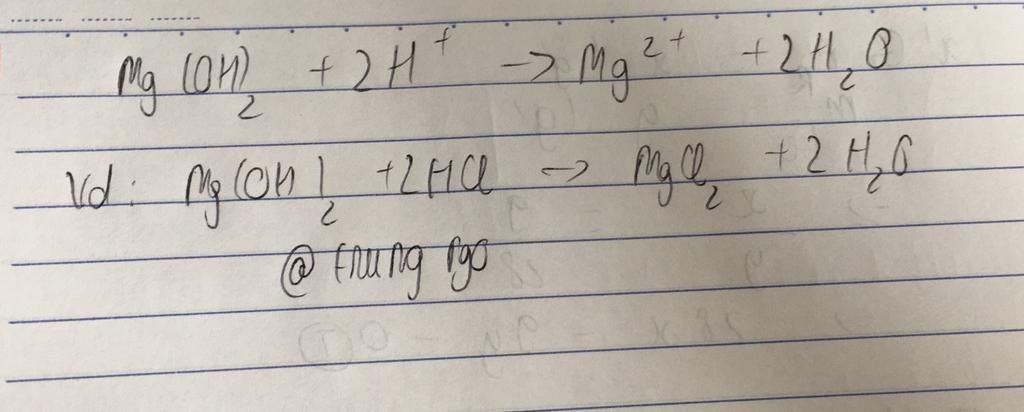 Mg(OH)₂ + 2H⁺ -> Mg²⁺ + 2H₂O
Vd: Mg(OH)₂ + 2HCl -> MgCl₂ + 2H₂O
@ trung ngo